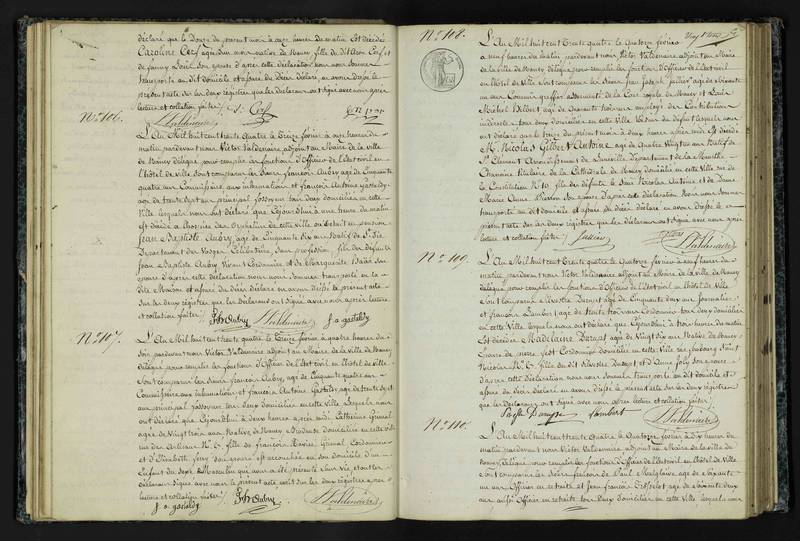 déclaré que le Douze du présent mois à onze heures du matin Est décédée
Caroline Cerf agée d'un mois native de Nancy fille de
et de Fanny son épouse d'après cette déclaration nous nous sommes
transporté au dit domicile et assuré du décès déclaré, en avons dressé le
présent acte Sur les deux registres que les déclarants ont signé avec nous après
lecture et collation faites
Cerf
Valdenaire
N° 106.
L'An Mil huit cent trente quatre le Treize février à heures du
matin pardevant nous Victor Valdenaire adjoint au Maire de la ville
de Nancy délégué pour remplir les fonctions d'Officier de l'état civil en
l'hôtel de Ville, Sont comparus les Sieurs françois Aubry agé de Cinquante
quatre ans Commissaire aux inhumations et françois Antoine
agé de trente sept ans principal fossoyeur tous deux domiciliés en cette
Ville lesquels nous ont déclaré que Cejourd'hui à une heure du matin
est décédé à l'hospice des Orphelins de cette ville
Jean Baptiste Aubry, agé de Cinquante six ans Natif de St Dié
Département des Vosges Célibataire, Sans profession fils des défunts
Jean Baptiste Aubry Vivant Cordonnier et de Marguerite son
épouse d'après cette déclaration nous nous Sommes transporté en la
dite Maison et assuré du décès déclaré en avons dressé le présent acte
Sur les deux registres que les déclarants ont Signé avec nous après lecture
et collation faites
Aubry Valdenaire f a gastaldy
N° 107.
L'An Mil huit cent trente quatre le Treize février à quatre heures du
Soir, pardevant nous Victor Valdenaire adjoint au Maire de la ville de Nancy
délégué pour remplir les fonctions d'Officier de l'état civil en l'hôtel de ville
Sont comparus les Sieurs françois Aubry, agé de Cinquante quatre ans
Commissaire aux inhumations et françois Antoine agé de trente sept
ans principal fossoyeur tous deux domiciliés en cette Ville lesquels nous
ont déclaré que Cejourd'hui à deux heures après midi Catherine
agée de Vingt trois ans Native de Nancy Brodeuse domiciliée en cette ville
rue des Artisans N° 6, fille de françois Cordonnier
et d'Elisabeth son épouse est accouchée en son domicile d'un
Enfant du Sexe Masculin qui nous a été présenté Sans Vie, et ont les
déclarants Signé avec nous le présent acte écrit Sur les deux registres après
lecture et collation faites
f a gastaldy Aubry Valdenaire
N° 108.
L'An Mil huit cent Trente quatre le Quatorze février
à neuf heures du matin, pardevant nous Victor Valdenaire adjoint au Maire
de la ville de Nancy délégué pour remplir les fonctions d'Officier de l'état civil
en l'hôtel de Ville Sont comparus les Sieurs Jean Joseph agé de soixante
ans Commis greffier assermenté de la Cour royale de Nancy et Louis
Michel agé de Soixante trois ans employé des Contributions
indirectes tous deux domiciliés en cette Ville du défunt lesquels nous
ont déclaré que le treize du présent mois à deux heures après midi Est décédé
M. Nicolas Gilbert Antoine agé de Quatre Vingt ans Natif de
St Clément Arrondissement de Lunéville Département de la Meurthe
Chanoine titulaire de la Cathédrale de Nancy domicilié en cette Ville rue de
la Constitution N° 10 fils des défunts le Sieur Nicolas Antoine et de Dame
Marie Anne Son épouse D'après cette déclaration Nous nous Sommes
transporté au dit domicile et assuré du décès déclaré en avons dressé le
présent acte Sur les deux registres que les déclarants ont signé avec nous après
lecture et collation faites
Valdenaire
N° 109.
L'An Mil huit cent Trente quatre le Quatorze février à neuf heures du
matin pardevant nous Victor Valdenaire adjoint au Maire de la Ville de Nancy
délégué pour remplir les fonctions d'Officier de l'état civil en l'hôtel de Ville
Sont comparus Silvestre agé de Cinquante deux ans Journalier
et françois Lambert agé de trente trois ans Cordonnier tous deux domiciliés
en cette Ville, lesquels nous ont déclaré que Cejourd'hui à trois heures du matin
Est décédée Madelaine agée de Vingt six ans Native de Nancy
Cordonnier domiciliée en cette Ville faubourg Saint
Nicolas N° 6, fille du dit Silvestre et d'Anne Son épouse
D'après cette déclaration nous nous Sommes transporté au dit domicile et
assuré du décès déclaré en avons dressé le présent acte Sur les deux registres
que les déclarants ont Signé avec nous après lecture et collation faites
Lambert Valdenaire
N° 110.
L'An Mil huit cent trente Quatre le Quatorze février à dix heures du
matin pardevant nous Victor Valdenaire, adjoint au Maire de la ville de
Nancy, délégué pour remplir les fonctions d'Officier de l'état civil en l'hôtel de Ville
Sont comparus les Sieurs françois de Paul agé de Soixante
un ans Officier en retraite et Jean françois agé de Soixante deux
ans aussi Officier en retraite tous Deux domiciliés en cette Ville, lesquels nous